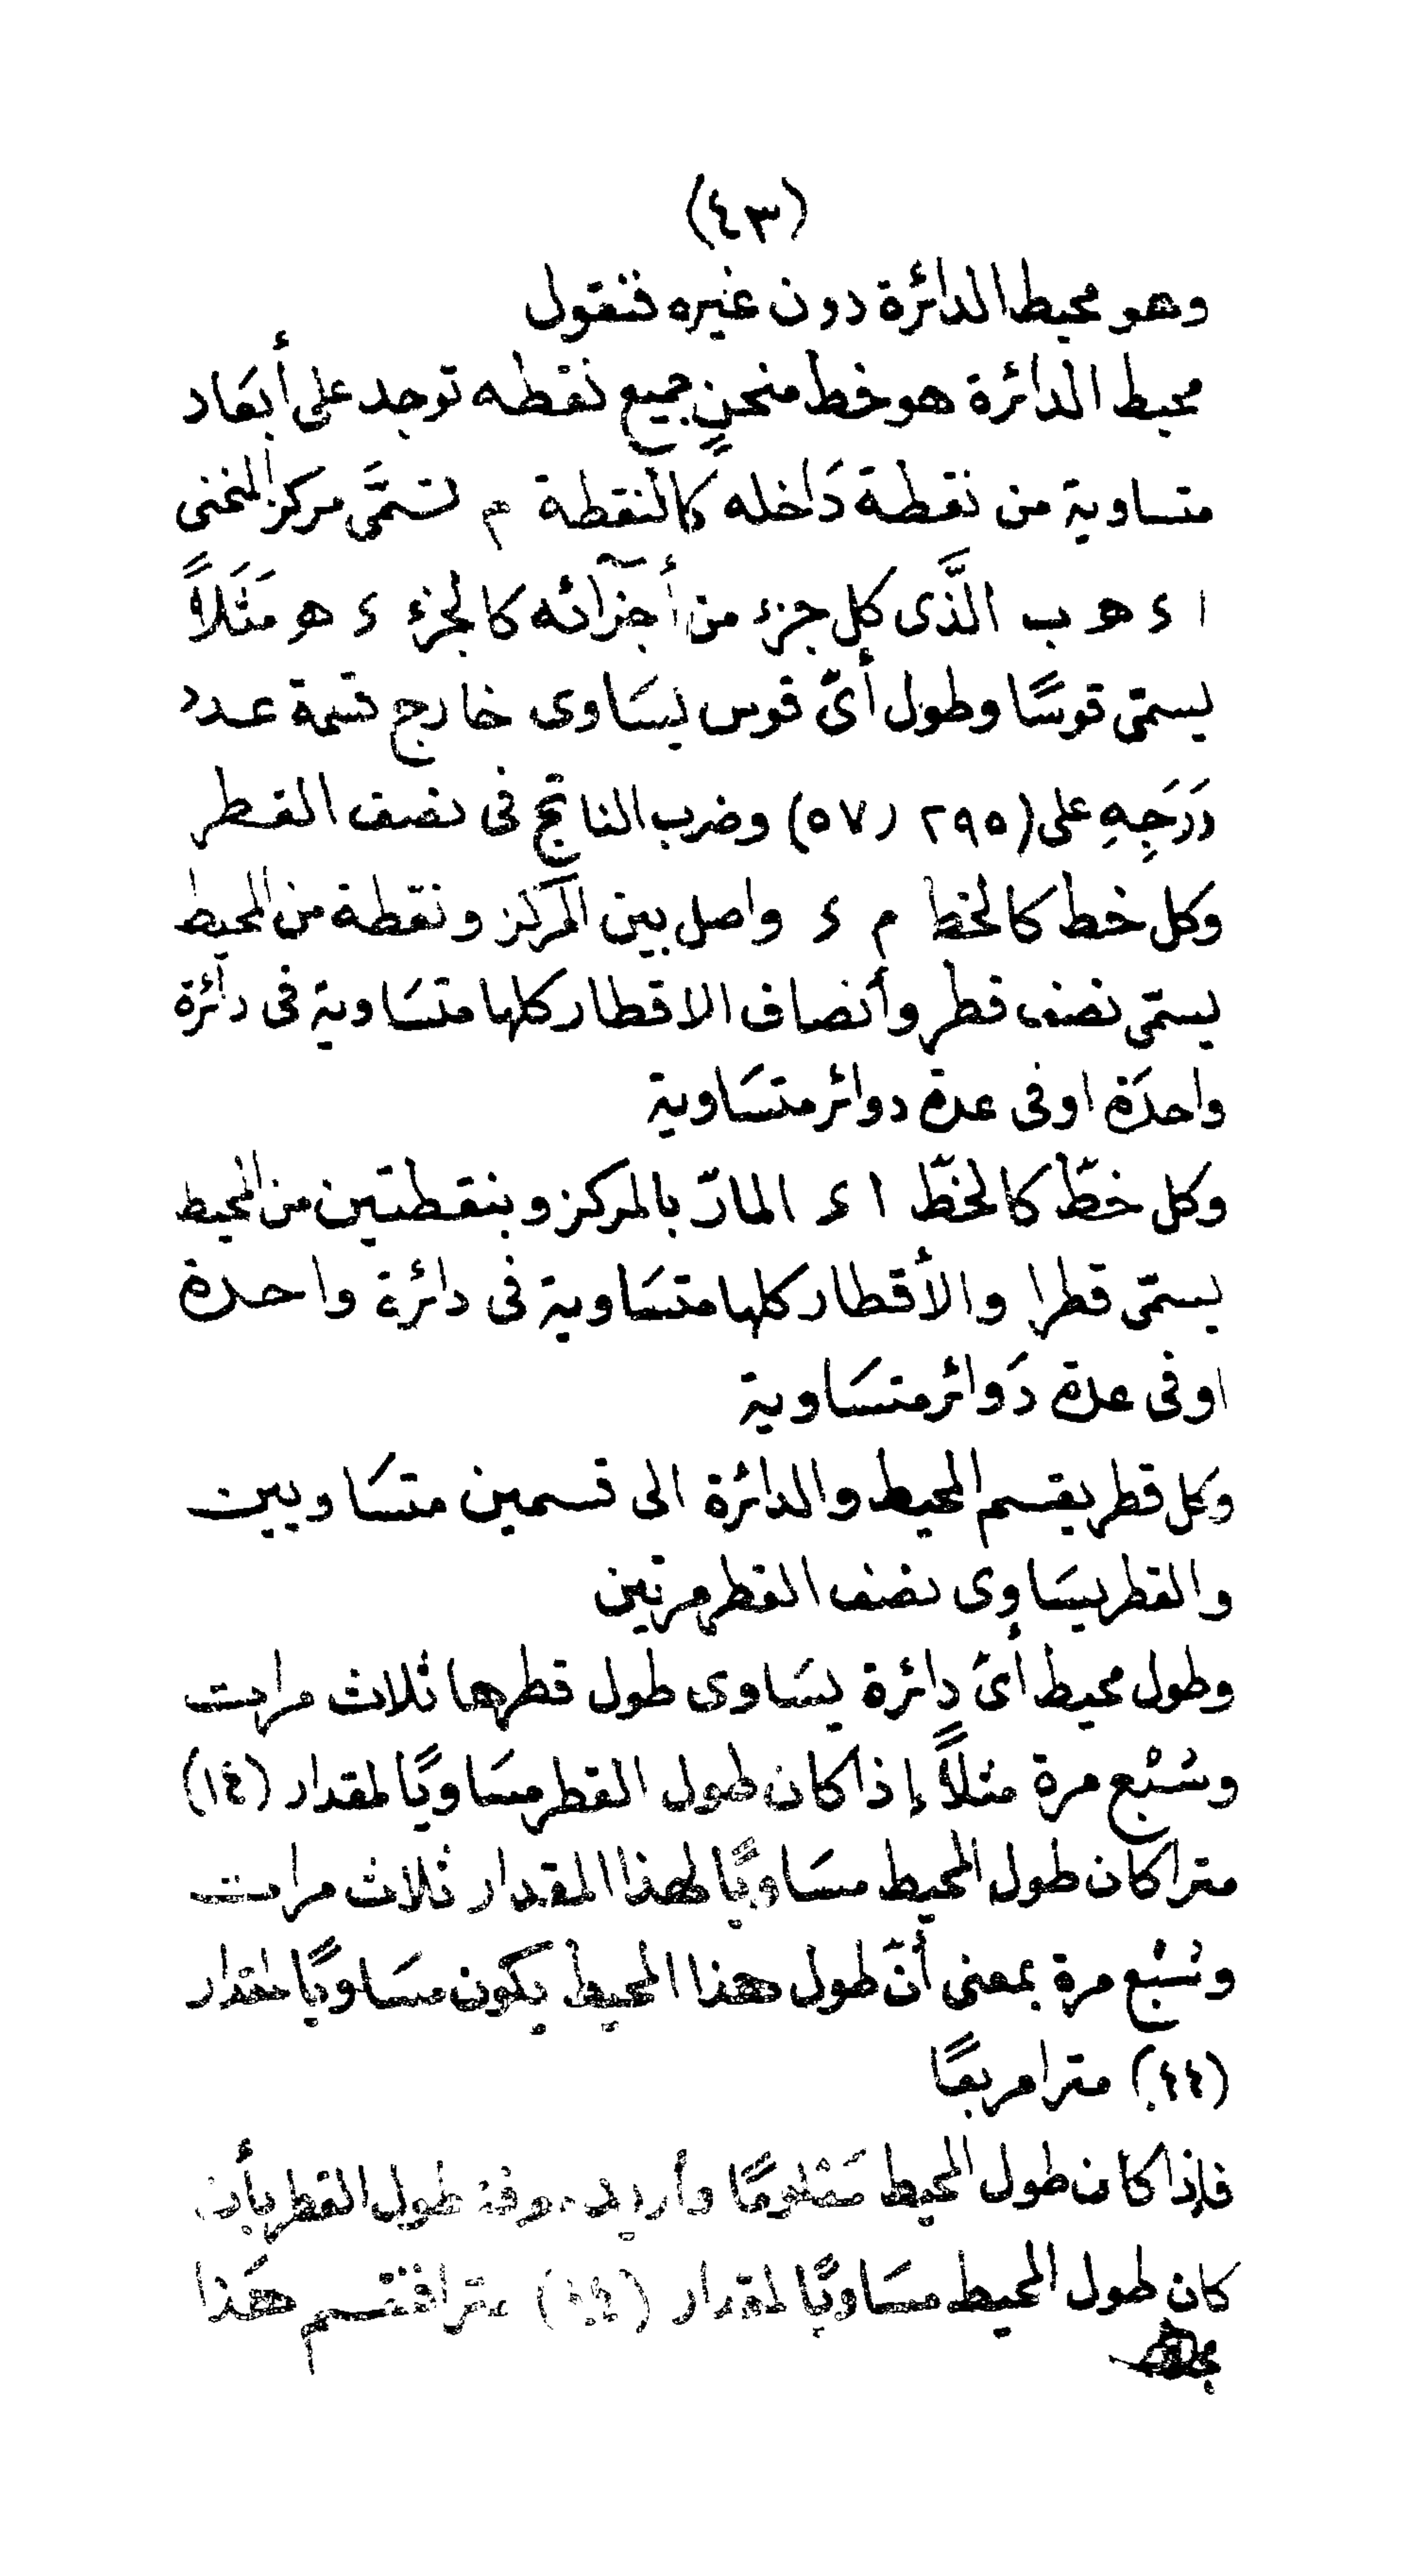 (٤٣)
وهو محيط الدائرة دون غيره فنقول
محيط الدائرة هو خط منحنٍ جميع نقطه توجد على أبعَاد
متساوية من نقطة دَاخله كالنقطة م تسمَّى مركز المنحنى
ا ء هـ ب الذَّى كل جزء من أجزآئه كالجزء ء هـ مَثَلاً
يسمّى قوسًا وطول أىّ قوس يسَاوى خارج قسمة عدد
دَرَجِهِ على (٢٩٥ ر ٥٧) وضرب الناتج فى نصف القطر
وكل خط كالخط م ء واصل بين المركز ونقطة من المحيط
يسمّى نصف قطر وأنصاف الاقطار كلها متسَاوية فى دائرة
واحدَة اوفى عدة دوائر متسَاوية
وكل خطّ كالخطّ ا ء المارّ بالمركز وبنقطتين من المحيط
يسمّى قطرا والأقطار كلها متسَاوية فى دائرة واحدة
اوفى عدة دَوائر متسَاوية
وكل قطر يقسم المحيط والدائرة الى قسمين متسَاويين
والقطر يسَاوى نصف القطر مرتين
وطول محيط أىّ دائرة يسَاوى طول قطرها ثلاث مرات
وسُبْع مرة مثلاً إذا كان طول القطر مسَاويًا لمقدار (١٤)
مترا كان طول المحيط مسَاويًا لهذا المقدار ثلاث مرات
وسُبْع مرة بمعنى أنّ طول هذا المحيط يكون مسَاويًا لمقدار
(٤٤) مترا مربعًا
فإذا كان طول المحيط مَعْلومًا وأريد معرفة طول القطر بأن
كان طول المحيط مسَاويًا لمقدار (٤٤) مترا فنقسم هَذا